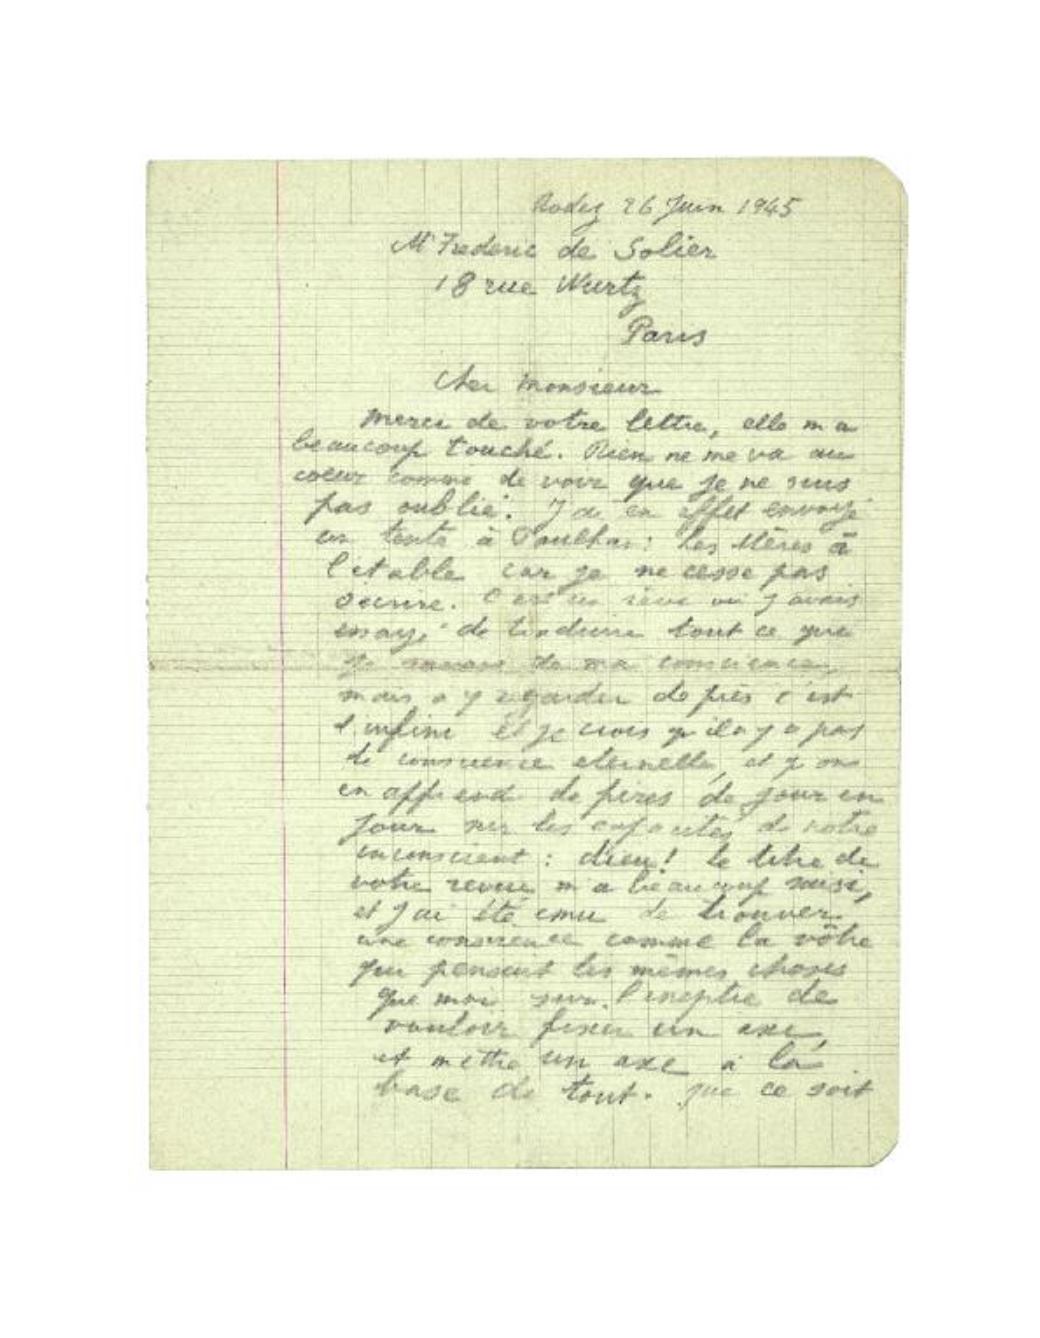 Rodez 26 Juin 1945
Mr Frederic de Solier
18 rue Wurtz
Paris
Cher Monsieur
Merci de votre lettre, elle m a
beaucoup touché. Rien ne me va au
coeur comme de voir que je ne suis
pas oublié. J ai en effet envoyé
un texte à Paulhan : Les Mères à
l'étable car je ne cesse pas
C est un rêve où j avais
essayé de traduire tout ce que
je de ma conscience,
mais a y regarder de près c est
l infini Et je crois qu il n y a pas
de conscience eternelle, et qu on
en apprend de pires de jour en
jour sur les capacités de notre
inconscient : dieu ! Le titre de
votre revue m a beaucoup saisi,
et j ai été emu de trouver
une conscience comme la vôtre
qui pensait les mêmes choses
que moi sur l ineptie de
vouloir fixer un axe,
et mettre un axe à la
base de tout. que ce soit